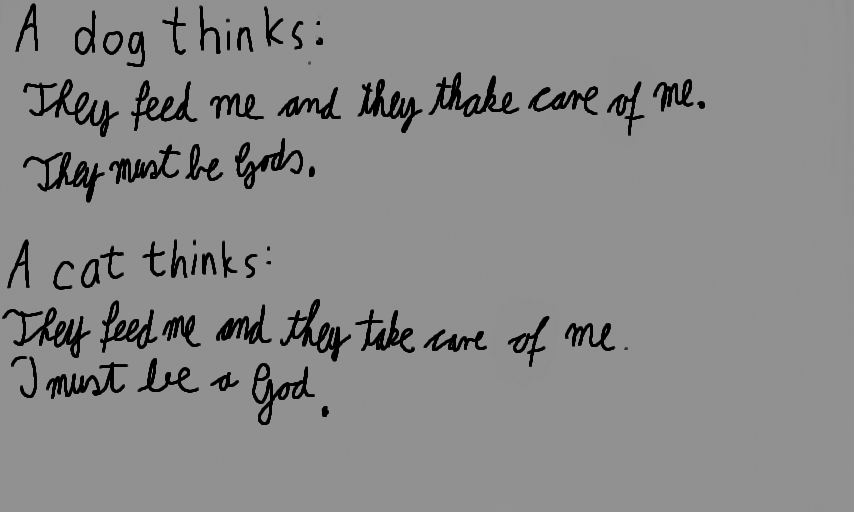 A dog thinks:
They feed me and they thake care of me.
They must be Gods.
A cat thinks:
They feed me and they take care of me.
I must be a God.